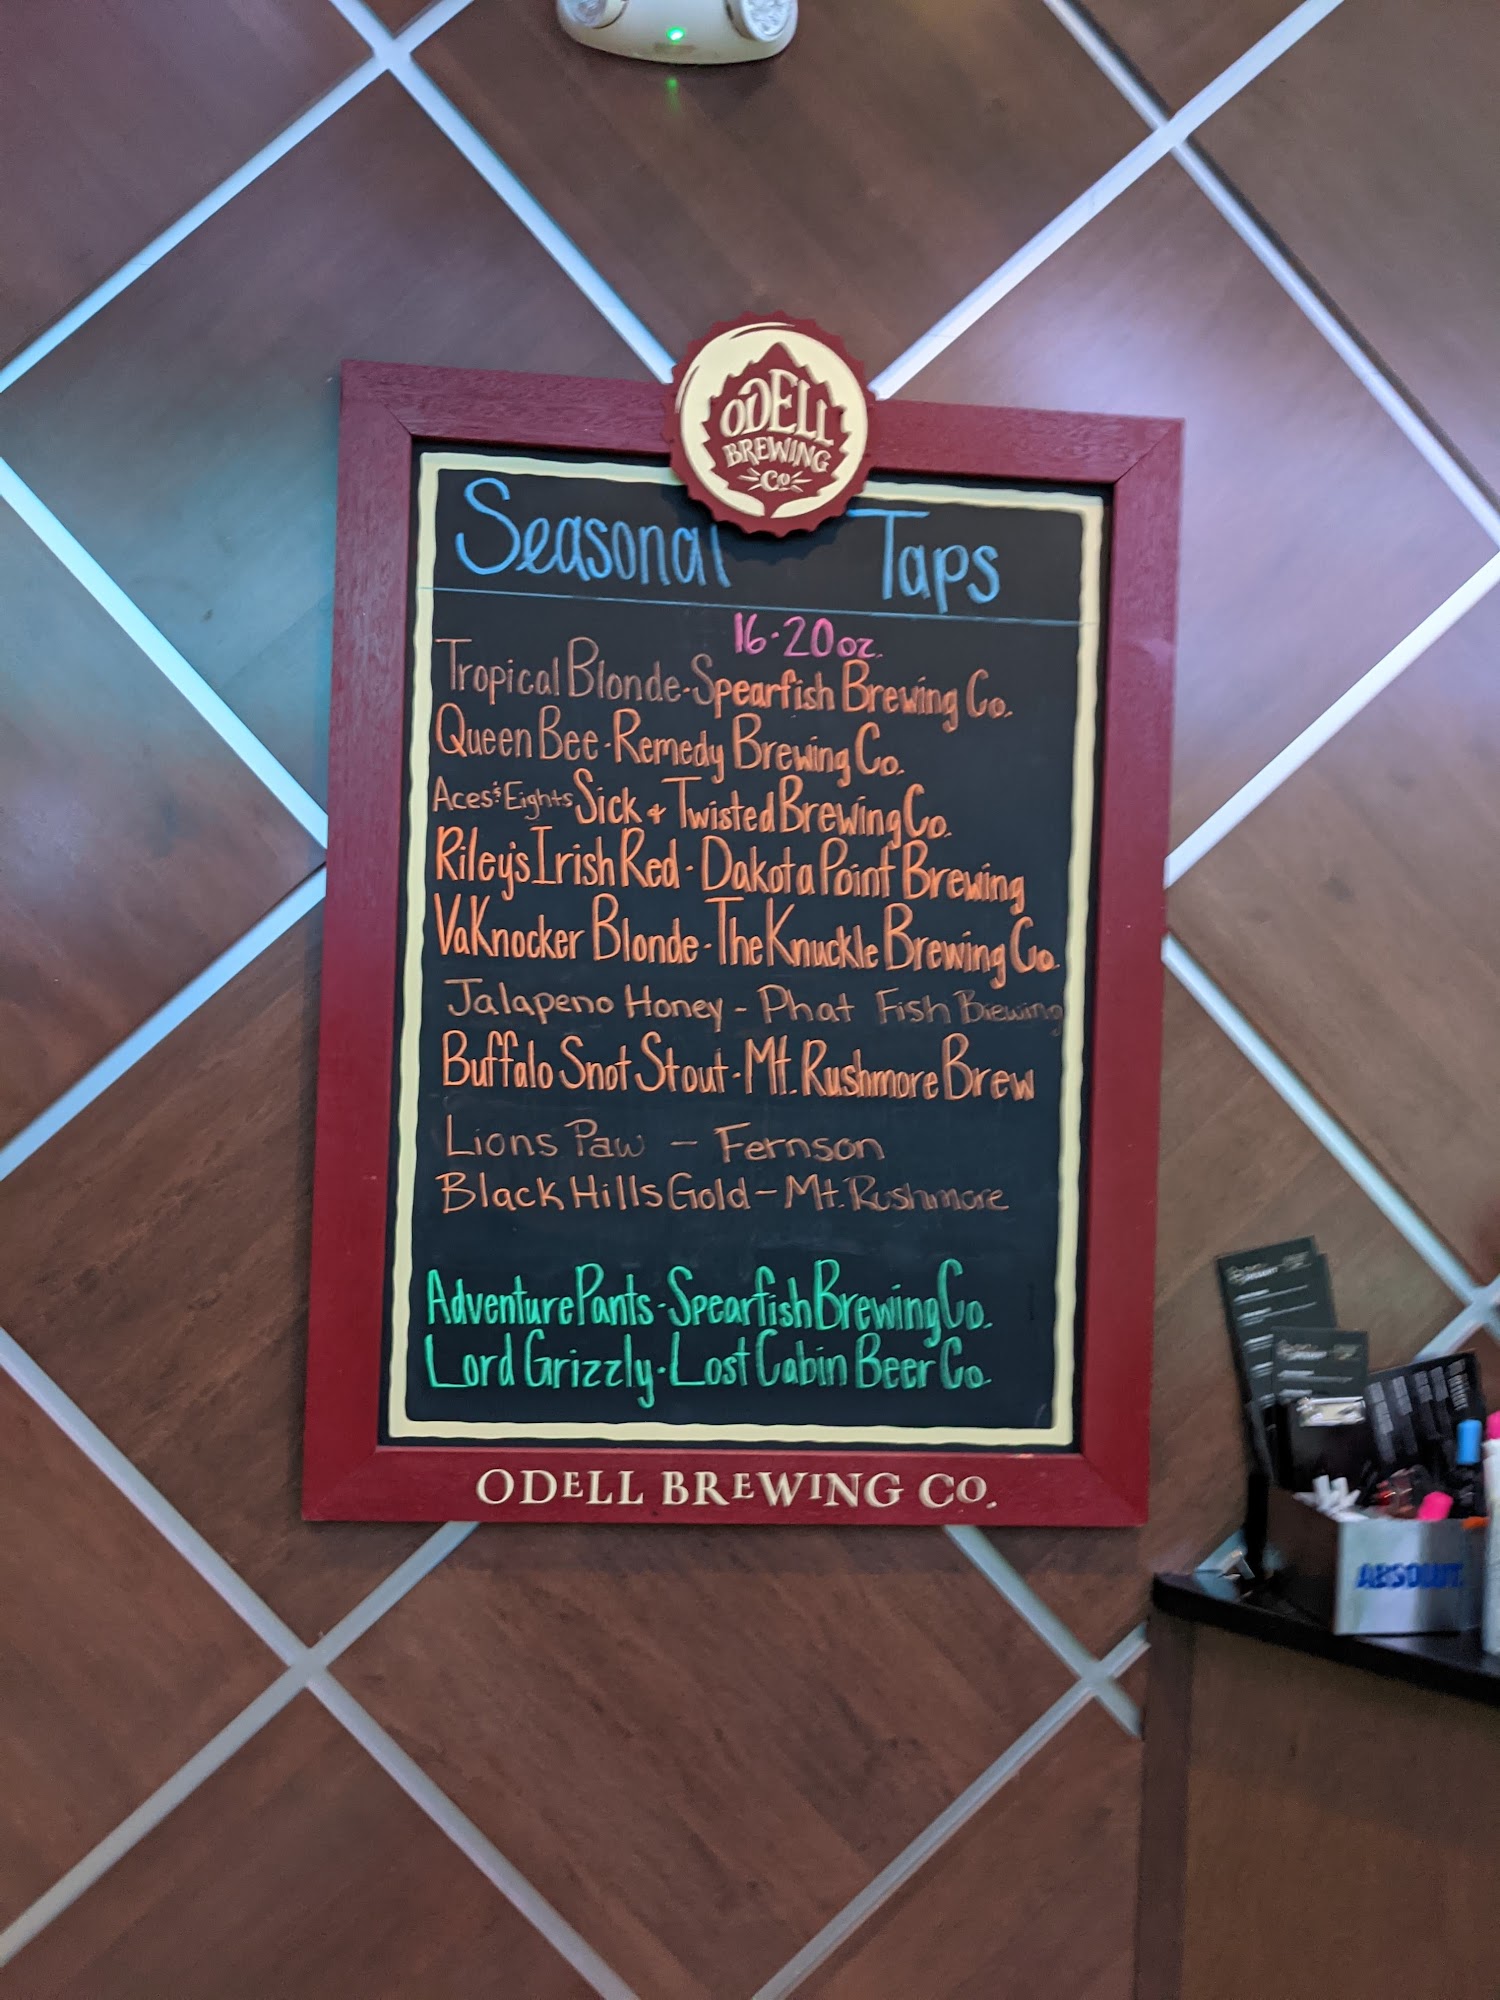 ODELL
BREWING
Co
Seasonal Taps
16-20oz.
Tropical Blonde-Spearfish Brewing Co.
Queen Bee-Remedy Brewing Co.
Aces & Eights Sick & Twisted Brewing Co.
Riley's Irish Red-Dakota Point Brewing
VaKnocker Blonde-The Knuckle Brewing Co.
Jalapeno Honey - Phat Fish Brewing
Buffalo Snot Stout-Mt. Rushmore Brew
Lions Paw - Fernson
Black Hills Gold-Mt. Rushmore
Adventure Pants-Spearfish Brewing Co.
Lord Grizzly-Lost Cabin Beer Co.
ODELL BREWING CO.
ABSOLUT